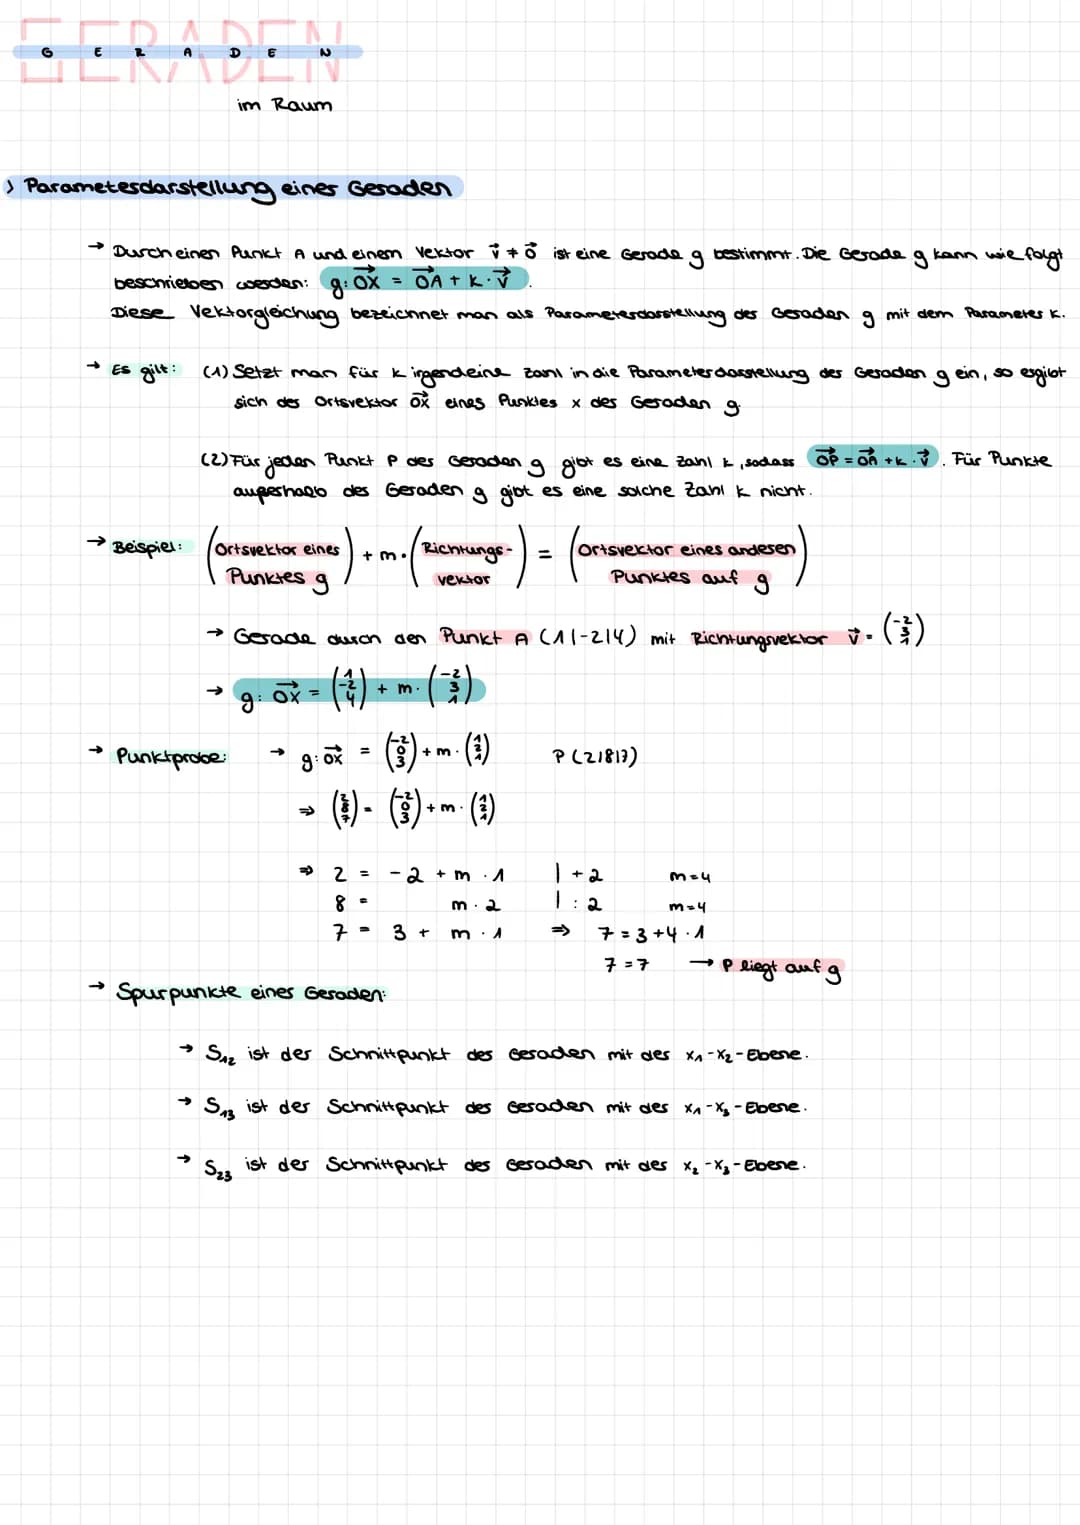 GERADEN
G E R A D E N
im Raum
> Parameterdarstellung einer Geraden
→ Durch einen Punkt A und einem Vektor v⃗ ≠ o⃗ ist eine Gerade g bestimmt. Die Gerade g kann wie folgt
beschrieben werden: g: OX⃗ = OA⃗ + k · v⃗.
Diese Vektorgleichung bezeichnet man als Parameterdarstellung der Geraden g mit dem Parameter k.
→ Es gilt: (1) Setzt man für k irgendeine Zahl in die Parameterdarstellung der Geraden g ein, so ergibt
sich der Ortsvektor OX⃗ eines Punktes x der Geraden g.
(2) Für jeden Punkt P der Geraden g gibt es eine Zahl k, sodass OP⃗ = OA⃗ + k · v⃗. Für Punkte
außerhalb der Geraden g gibt es eine solche Zahl k nicht.
→ Beispiel: (Ortsvektor eines Punktes g) + m · (Richtungs-vektor) = (Ortsvektor eines anderen Punktes auf g)
→ Gerade durch den Punkt A (1|-2|4) mit Richtungsvektor v⃗ = (-2 3 1)
→ g: OX⃗ = (1 -2 4) + m · (-2 3 1)
→ Punktprobe: → g: OX⃗ = (-2 0 3) + m · (1 2 1) P (2|8|7)
⇒ (2 8 7) = (-2 0 3) + m · (1 2 1)
⇒ 2 = -2 + m · 1 | +2 m=4
8 = m · 2 | : 2 m=4
7 = 3 + m · 1 ⇒ 7 = 3 + 4 · 1
7 = 7 → P liegt auf g
→ Spurpunkte einer Geraden:
→ S₁₂ ist der Schnittpunkt der Geraden mit der x₁-x₂-Ebene.
→ S₁₃ ist der Schnittpunkt der Geraden mit der x₁-x₃-Ebene.
→ S₂₃ ist der Schnittpunkt der Geraden mit der x₂-x₃-Ebene.